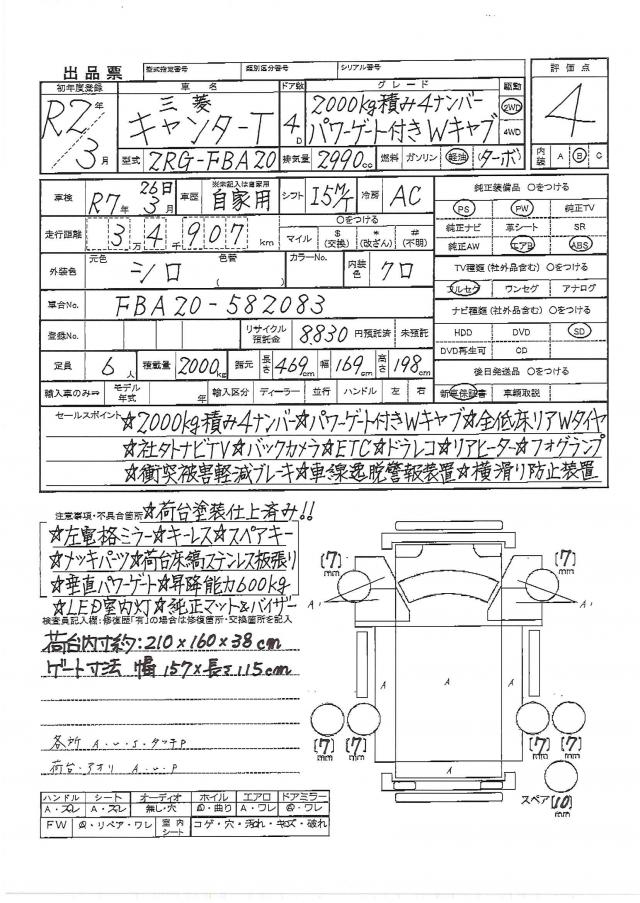 出品票 型式指定番号 類別区分番号 シリアル番号
初年度登録 車名 ドア数 グレード 駆動 評価点
R2年 3月 三菱 キャンターT 4D 2000kg積み4ナンバー パワーゲート付きWキャブ 2WD 4WD 4
型式 2RG-FBA20 排気量 2990cc 燃料 ガソリン 軽油 (ターボ) 内装 A B C
車検 R7年 26日 3月 車歴 ※未記入は自家用 自家用 シフト I5M/T 冷房 AC 純正装備品 ○をつける
走行距離 3万4千907km ○をつける マイル $(交換) *(改ざん) #(不明)
PS PW 純正TV
純正ナビ 革シート SR
純正AW エアB ABS
外装色 元色 シロ 色替 ( ) カラーNo. 内装色 クロ
TV種類(社外品含む) ○をつける
フルセグ ワンセグ アナログ
車台No. FBA20-582083
ナビ種類(社外品含む) ○をつける
登録No. リサイクル預託金 8,830円預託済 未預託
HDD DVD SD
DVD再生可 CD
定員 6人 積載量 2000kg 諸元 長さ 469cm 幅 169cm 高さ 198cm
後日発送品 ○をつける
輸入車のみ⇒ モデル年式 年 輸入区分 ディーラー 並行 ハンドル 左 右
新車保証書 車輌取説
セールスポイント ☆2000kg積み4ナンバー☆パワーゲート付きWキャブ☆全低床リアWタイヤ
☆社外ナビTV☆バックカメラ☆ETC☆ドラレコ☆リアヒーター☆フォグランプ
☆衝突被害軽減ブレーキ☆車線逸脱警報装置☆横滑り防止装置
注意事項・不具合箇所 ☆荷台塗装仕上済み!!
☆左電格ミラー☆キーレス☆スペアキー
☆メッキパーツ☆荷台床縞ステンレス板張り
☆垂直パワーゲート☆昇降能力600kg
☆LED室内灯☆純正マット&バイザー
検査員記入欄:修復歴「有」の場合は修復箇所・交換箇所を記入
荷台内寸約:210×160×38cm
ゲート寸法 幅157×長さ115cm
各所 A.U.S.タッチP
荷台.アオリ A.U.P
[7]mm [7]mm
A' A'
A A A
[7]mm [7]mm [7]mm [7]mm
A
スペア [10]mm
ハンドル シート オーディオ ホイル エアロ ドアミラー
A・スレ A・スレ 無し・穴 ・曲り A・ワレ ・ワレ
FW ・リペア・ワレ 室内シート コゲ・穴・汚れ・キズ・破れ